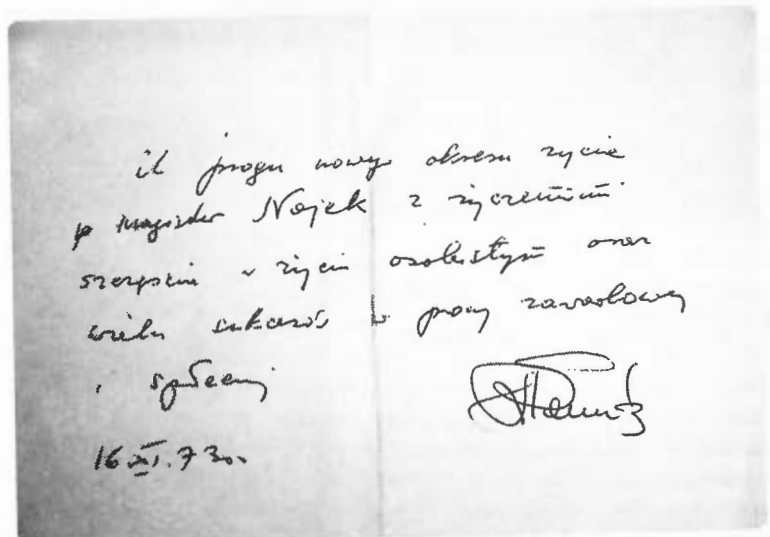 U progu nowego okresu życia
p magister Nojek z życzeniami
szczęścia w życiu osobistym oraz
wielu sukcesów w pracy zawodowej
i społecznej
16 XI. 73 r.